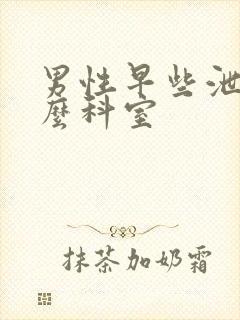 男性早些泄
麼科室
抹茶加奶霜